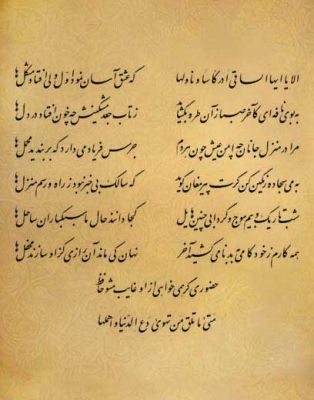 الا یا ایها الساقی ادر کاسا و ناولها که عشق آسان نمود اول ولی افتاد مشکل‌ها
به بوی نافه‌ای کآخر صبا زان طره بگشاید ز تاب جعد مشکینش چه خون افتاد در دل‌ها
مرا در منزل جانان چه امن عیش چون هر دم جرس فریاد می‌دارد که بربندید محمل‌ها
به می سجاده رنگین کن گرت پیر مغان گوید که سالک بی‌خبر نبود ز راه و رسم منزل‌ها
شب تاریک و بیم موج و گردابی چنین هایل کجا دانند حال ما سبکباران ساحل‌ها
همه کارم ز خود کامی به بدنامی کشید آخر نهان کی ماند آن رازی کزو سازند محفل‌ها
حضوری گر همی خواهی ازو غایب مشو حافظ
متی ما تلق من تهوی دع الدنیا و اهملها